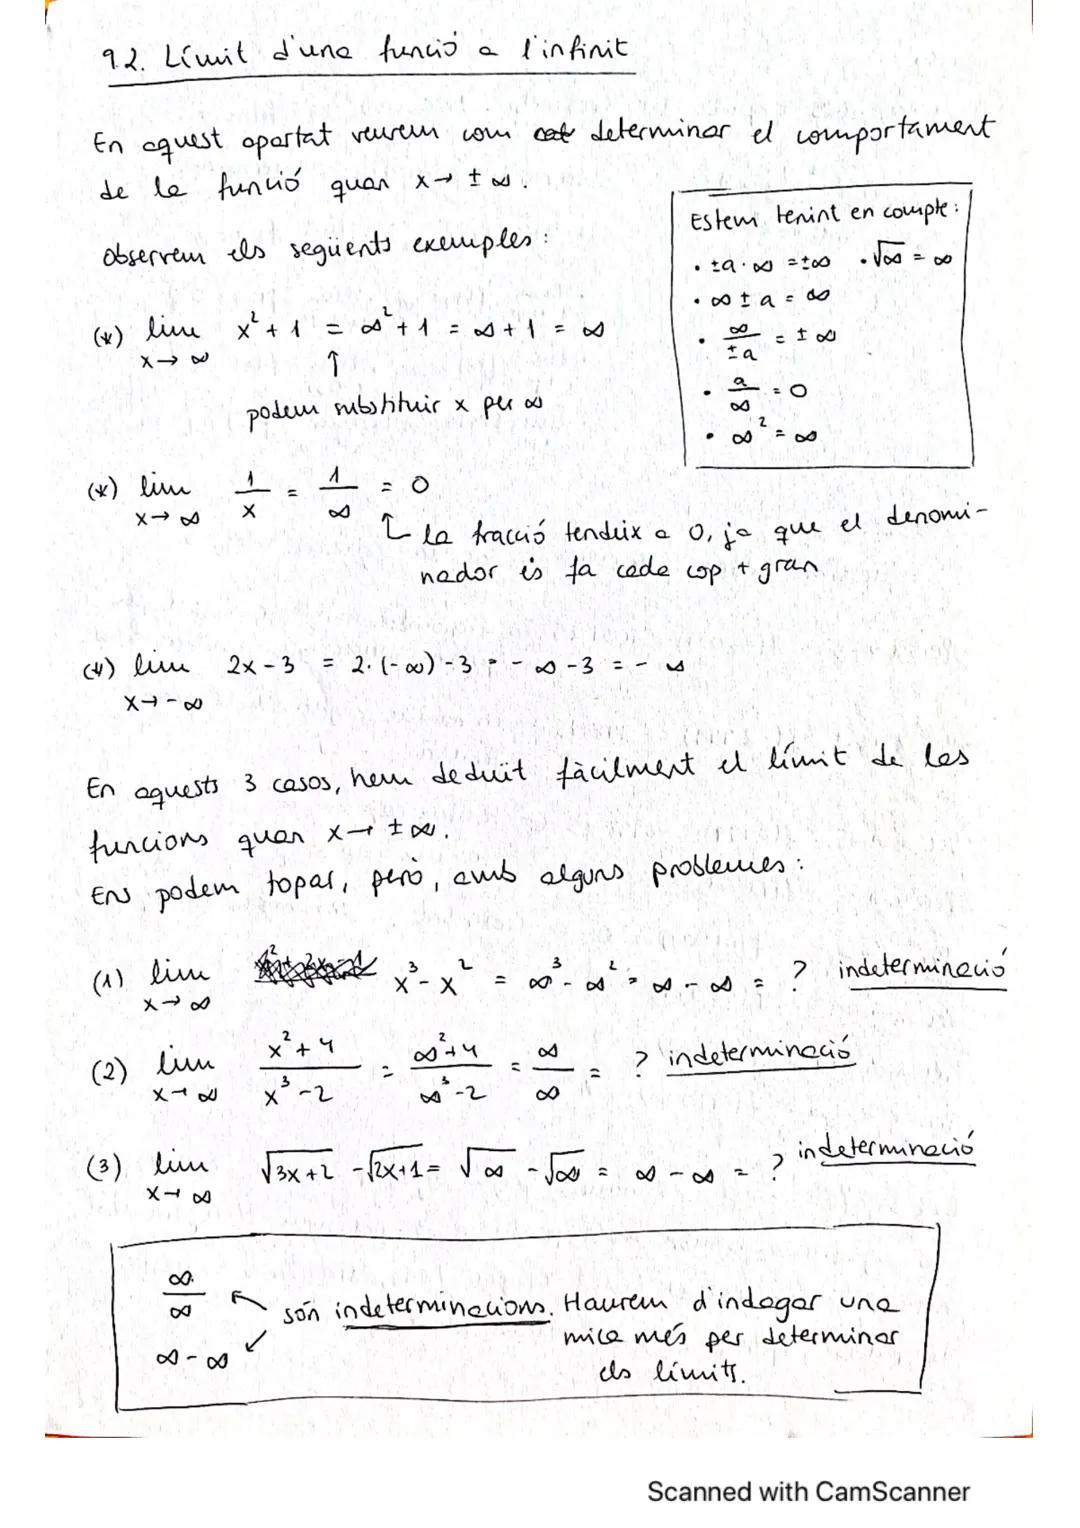 9.2. Límit d'una funció a l'infinit
En aquest apartat veurem com determinar el comportament
de la funció quan x→ ±∞.
Observem els següents exemples:
Estem tenint en compte:
• ±a·∞ = ±∞ • √∞ = ∞
• ∞ ± a = ∞
• ∞/±a = ±∞
• a/∞ = 0
• ∞² = ∞
(*) lim x→∞ x² + 1 = ∞² + 1 = ∞ + 1 = ∞
↑
podem substituir x per ∞
(*) lim x→∞ 1/x = 1/∞ = 0
la fracció tendeix a 0, ja que el denomi-
nador es fa cada cop + gran
(*) lim x→-∞ 2x - 3 = 2·(-∞) - 3 = -∞ - 3 = -∞
En aquests 3 casos, hem deduït fàcilment el límit de les
funcions quan x→ ±∞.
Ens podem topar, però, amb alguns problemes:
(1) lim x→∞ x³ - x² = ∞³ - ∞² = ∞ - ∞ = ? indeterminació
(2) lim x→∞ (x² + 4)/(x³ - 2) = (∞² + 4)/(∞³ - 2) = ∞/∞ = ? indeterminació
(3) lim x→∞ √3x+2 - √2x+1 = √∞ - √∞ = ∞ - ∞ = ? indeterminació
∞/∞
són indeterminacions. Haurem d'indagar una
mica més per determinar
∞ - ∞
els límits.
Scanned with CamScanner